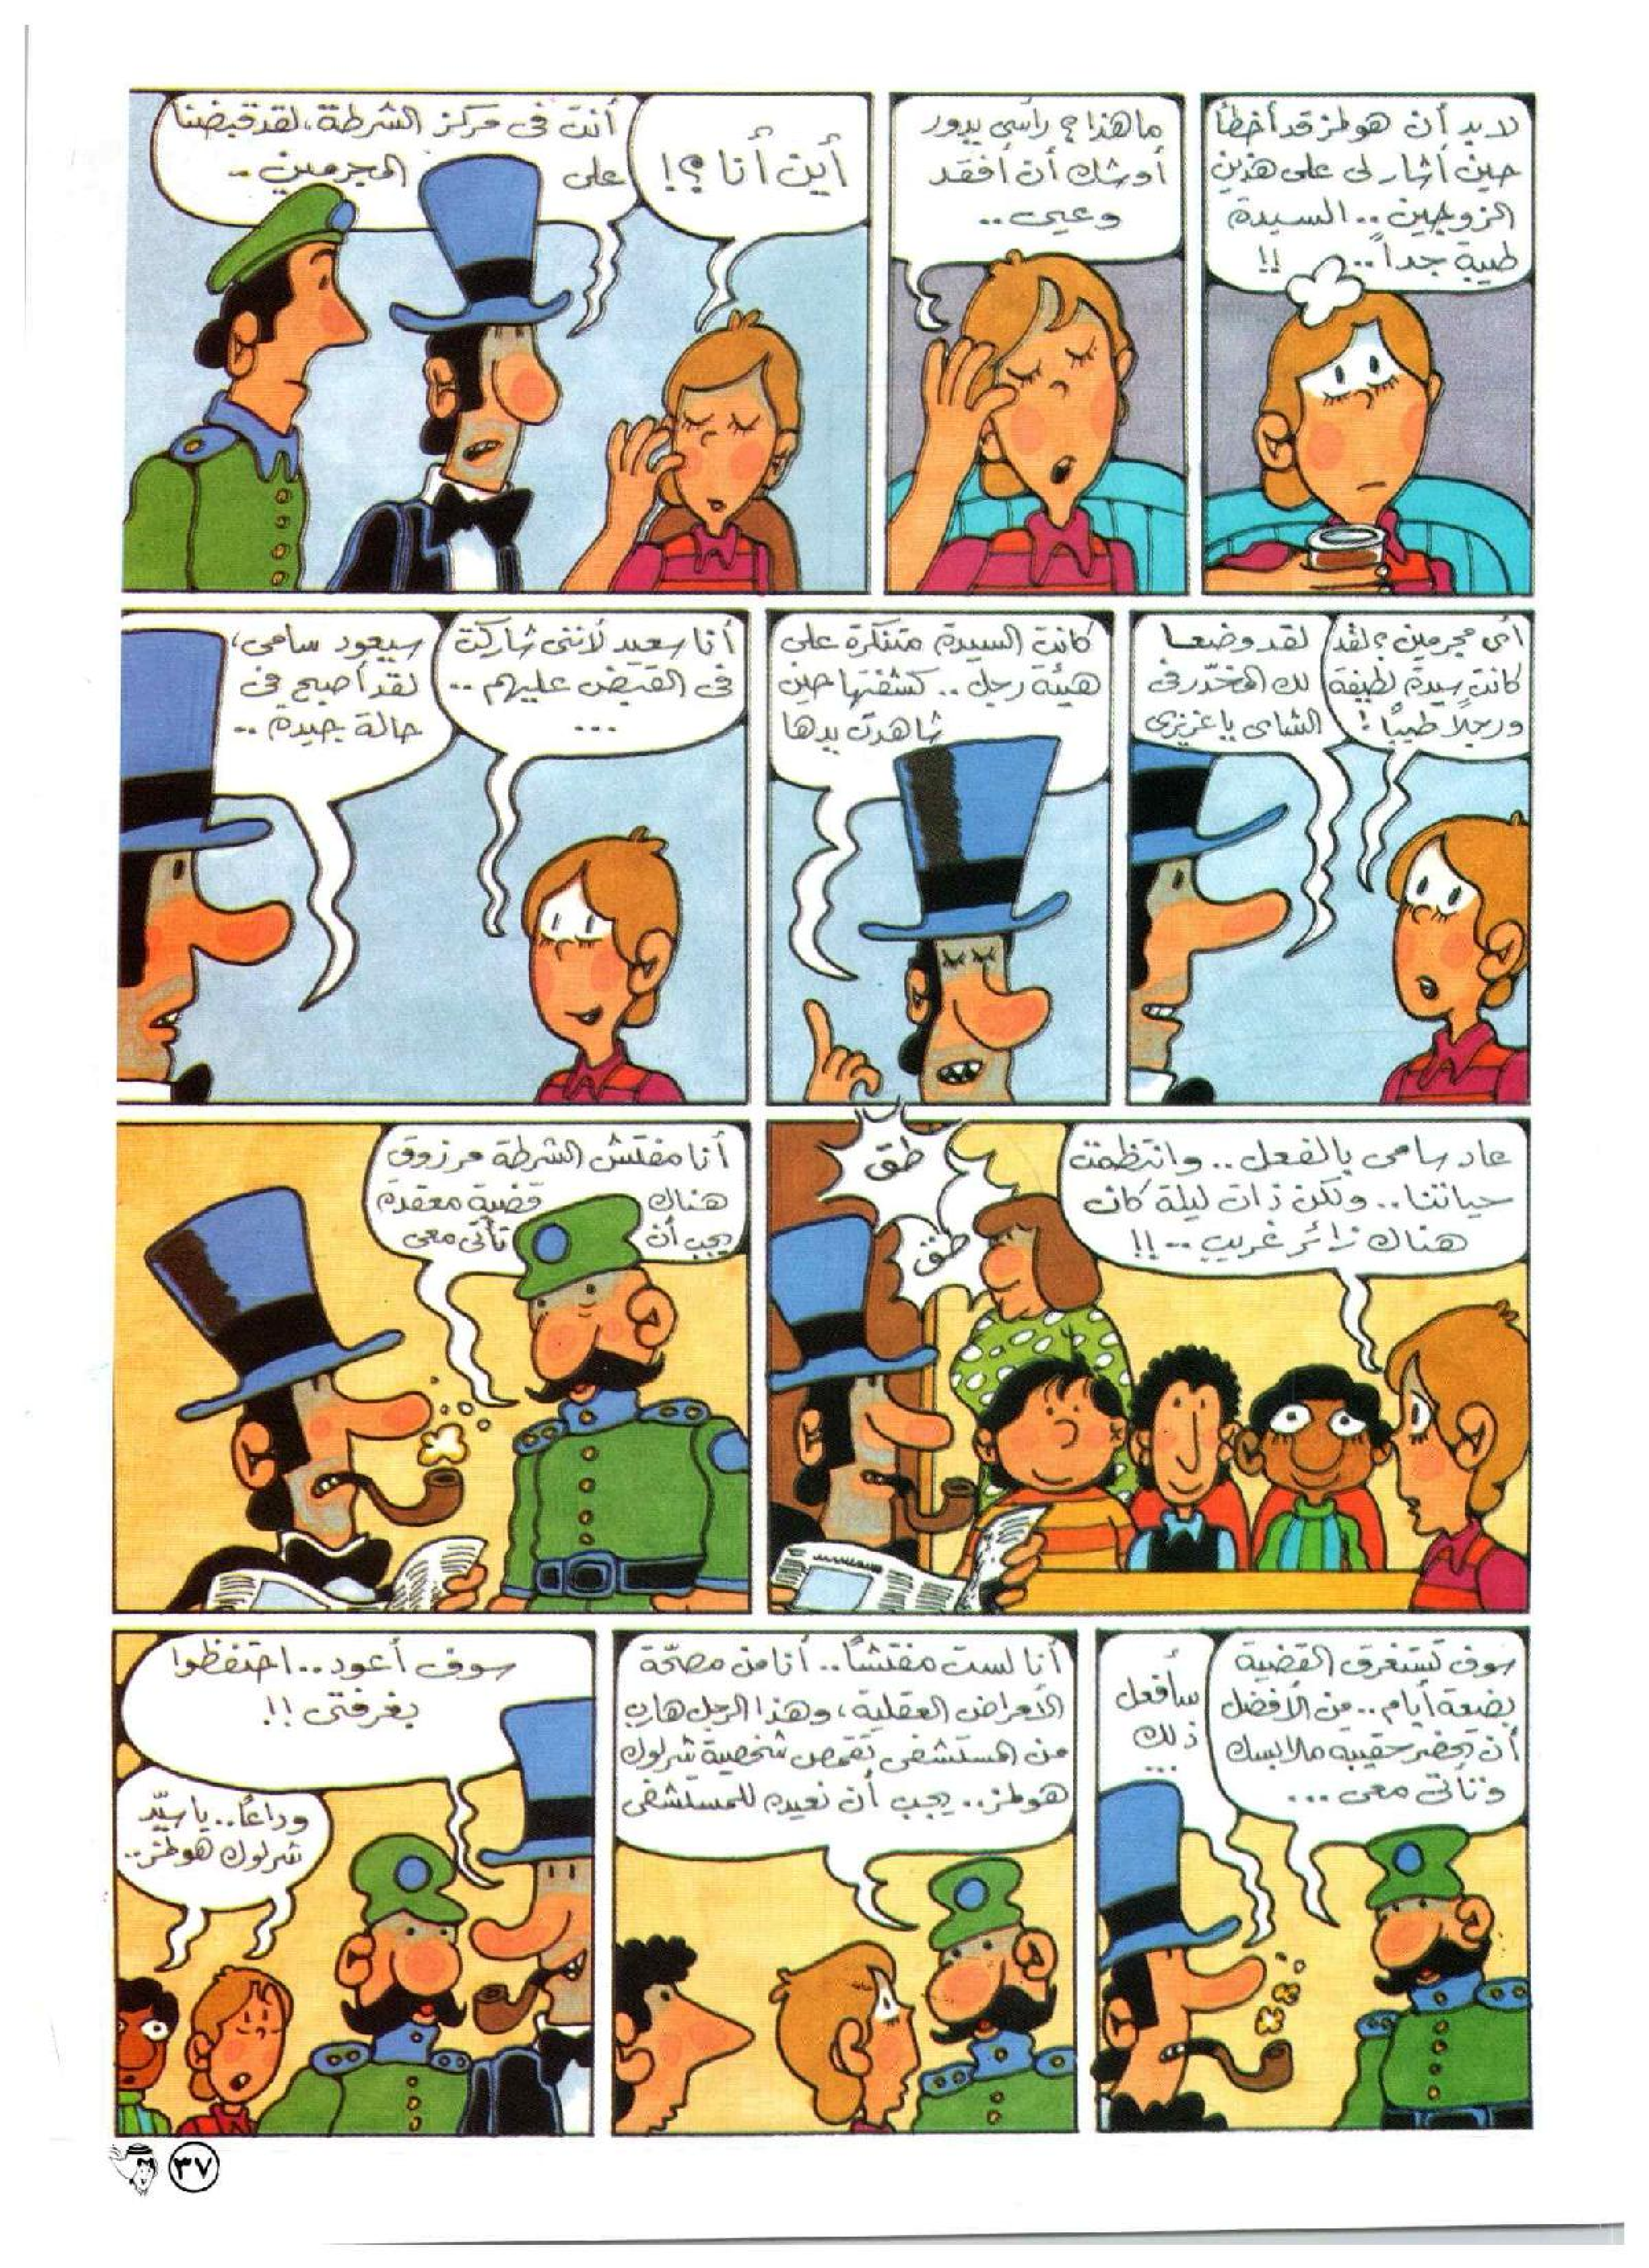 لابد أن هولمز قد أخطأ
حين أشار لى على هذين
الزوجين .. السيدة
طيبة جداً .. !!
ما هذا ؟ رأسى يدور
أوشك أن أفقد
وعيى ..
أين أنا ؟!
أنت فى مركز الشرطة، لقد قبضنا
على المجرمين ..
أى مجرمين ؟ لقد
كانت سيدة لطيفة
ورجلاً طيباً !
لقد وضعا
لك المخدّر فى
الشاى يا عزيزى
كانت السيدة متنكرة على
هيئة رجل .. كشفتها حين
شاهدت يدها
أنا سعيد لأننى شاركت
فى القبض عليهم ..
...
سيعود سامى،
لقد أصبح فى
حالة جيدة ..
عاد سامى بالفعل .. وانتظمت
حياتنا .. ولكن ذات ليلة كان
هناك زائر غريب .. !!
طق
طق
أنا مفتش الشرطة مرزوق
هناك قضية معقدة
يجب أن تأتى معى
سوف تستغرق القضية
بضعة أيام .. من الأفضل
أن تحضر حقيبة ملابسك
وتأتى معى ...
سأفعل
ذلك
...
أنا لست مفتشاً .. أنا من مصحّة
الأمراض العقلية، وهذا الرجل هارب
من المستشفى تقمص شخصية شرلوك
هولمز .. يجب أن نعيده للمستشفى
سوف أعود .. احتفظوا
بغرفتى !!
وداعاً .. يا سيّد
شرلوك هولمز ..
٣٧